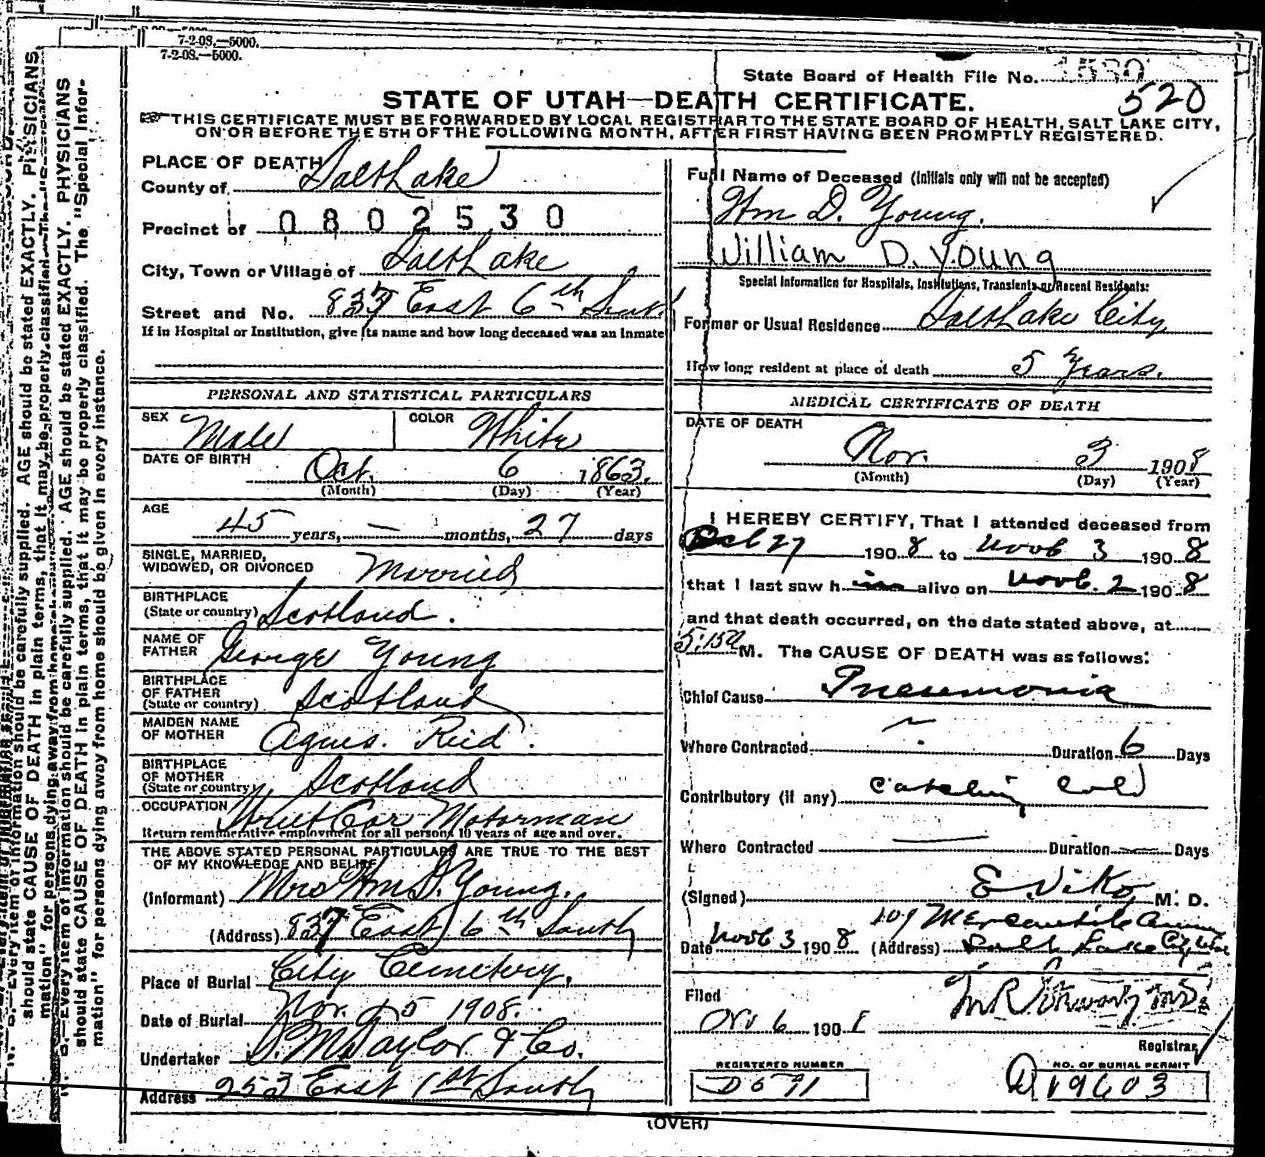 7-2-08.—5000.
7-2-08.—5000.
State Board of Health File No.
520
STATE OF UTAH—DEATH CERTIFICATE.
THIS CERTIFICATE MUST BE FORWARDED BY LOCAL REGISTRAR TO THE STATE BOARD OF HEALTH, SALT LAKE CITY,
ON OR BEFORE THE 5TH OF THE FOLLOWING MONTH, AFTER FIRST HAVING BEEN PROMPTLY REGISTERED.
PLACE OF DEATH
County of Salt Lake
Precinct of 0802530
City, Town or Village of Salt Lake
Street and No. 837 East 6th South
If in Hospital or Institution, give its name and how long deceased was an inmate
PERSONAL AND STATISTICAL PARTICULARS
SEX Male COLOR White
DATE OF BIRTH Oct. 6 1863.
(Month) (Day) (Year)
AGE
45 years, — months, 27 days
SINGLE, MARRIED,
WIDOWED, OR DIVORCED Married
BIRTHPLACE
(State or country) Scotland.
NAME OF
FATHER George Young
BIRTHPLACE
OF FATHER
(State or country) Scotland
MAIDEN NAME
OF MOTHER Agnes. Reid.
BIRTHPLACE
OF MOTHER
(State or country) Scotland
OCCUPATION Street Car Motorman
Return remunerative employment for all persons 10 years of age and over.
THE ABOVE STATED PERSONAL PARTICULARS ARE TRUE TO THE BEST
OF MY KNOWLEDGE AND BELIEF
(Informant) Mrs Wm D. Young.
(Address) 837 East 6th South
Place of Burial City Cemetery.
Date of Burial Nov. 5 1908.
Undertaker S. M. Taylor & Co.
Address 253 East 1st South
Full Name of Deceased (Initials only will not be accepted)
Wm D. Young.
William D. Young
Special Information for Hospitals, Institutions, Transients or Recent Residents:
Former or Usual Residence Salt Lake City
How long resident at place of death 5 Years.
MEDICAL CERTIFICATE OF DEATH
DATE OF DEATH
Nov. 3 1908
(Month) (Day) (Year)
I HEREBY CERTIFY, That I attended deceased from
Oct 27 1908 to Novb 3 1908
that I last saw him alive on Novb. 2 1908
and that death occurred, on the date stated above, at
5:15a M. The CAUSE OF DEATH was as follows:
Chief Cause Pneumonia
Where Contracted Duration 6 Days
Contributory (if any) Catching Cold
Where Contracted — Duration — Days
(Signed) E Viko M. D.
Date Novb 3 1908 (Address) 109 Mercantile
Salt Lake Cy
Filed
Nov 6 1908
Registrar
REGISTERED NUMBER
D 571
NO. OF BURIAL PERMIT
A 19603
(OVER)
should state CAUSE OF DEATH in plain terms, that it may be properly classified. The "Special Infor-
mation" for persons dying away from home should be given in every instance.